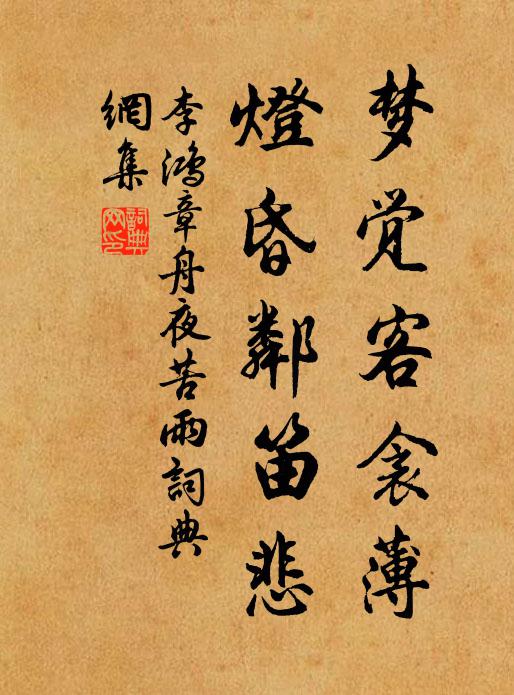 梦觉客衾薄
燈昏鄰笛悲
李鴻章舟夜苦雨詞典
網集
詞典網印